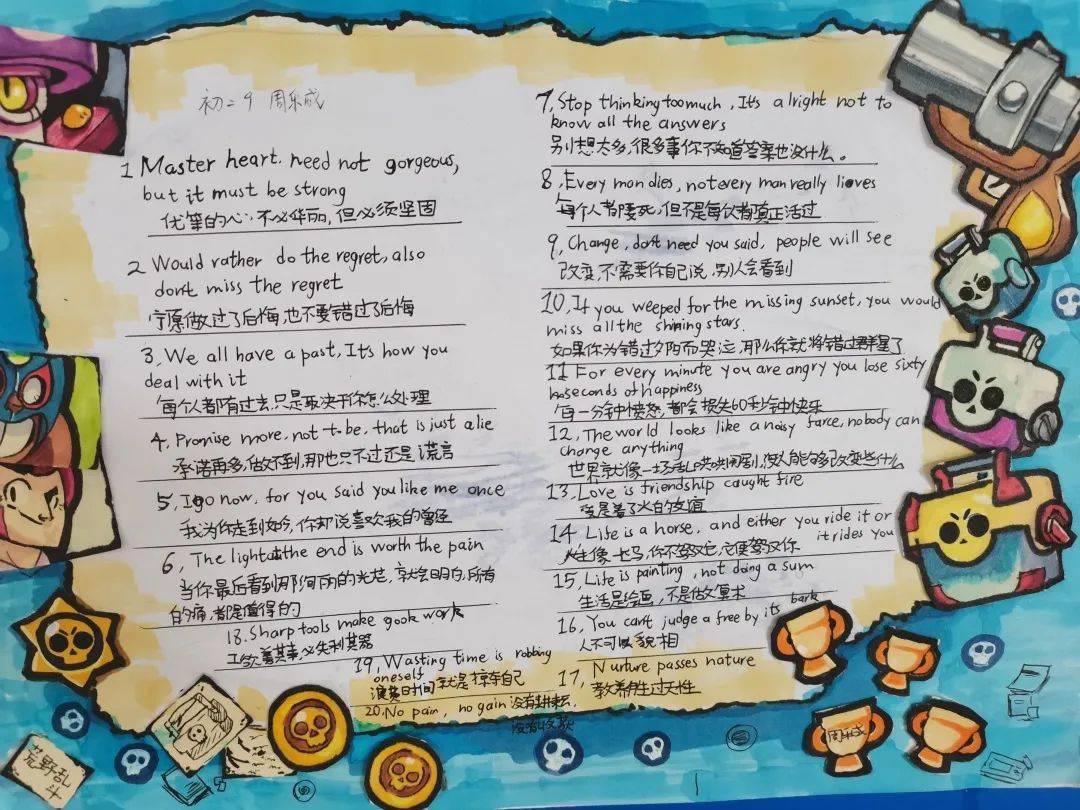 初二9 周乐成
1 Master heart. need not gorgeous,
but it must be strong
优等的心,不必华丽,但必须坚固
2 Would rather do the regret, also
don't miss the regret
宁愿做过了后悔,也不要错过了后悔
3、We all have a past, Its how you
deal with it
每个人都有过去,只是取决于你怎么处理
4、Promise more, not to be, that is just a lie
承诺再多,做不到,那也只不过还是谎言
5、I go now, for you said you like me once
我为你走到如今,你却说喜欢我的曾经
6、The light at the end is worth the pain
当你最后看到那 的光芒,就会明白,所有
的痛,都是值得的
18. Sharp tools make gook work
工欲善其事,必先利其器
19, Wasting time is robbing
oneself
浪费时间就是掠夺自己
20. No pain, no gain 没有耕耘,
没有收获
7, Stop thinking too much, It's alright not to
know all the answers
别想太多,很多事你不知道答案也没什么。
8, Every man dies, not every man really lioves
每个人都要死,但不是每个人都真正活过
9, Change, don't need you said, people will see
改变,不需要你自己说,别人会看到
10, If you weeped for the missing sunset, you would
miss all the shining stars.
如果你为错过夕阳而哭泣,那么你就将错过群星了
11 For every minute you are angry you lose sixty
seconds of happiness
每一分钟愤怒,都会损失60秒钟快乐
12, The world looks like a noisy farce, nobody can
change anything
世界就像一场乱哄哄闹剧,没人能够改变些什么
13, Love is friendship caught fire
是着了火的友谊
14, Life is a horse, and either you ride it or
it rides you
人生像一匹马,你不驾驭它,它便驾驭你
15, Life is painting, not doing a sum
生活是绘画,不是做算术
16, You can't judge a free by its bark
人不可以貌相
17, Nurture passes nature
教养胜过天性
周乐成
荒野乱
斗